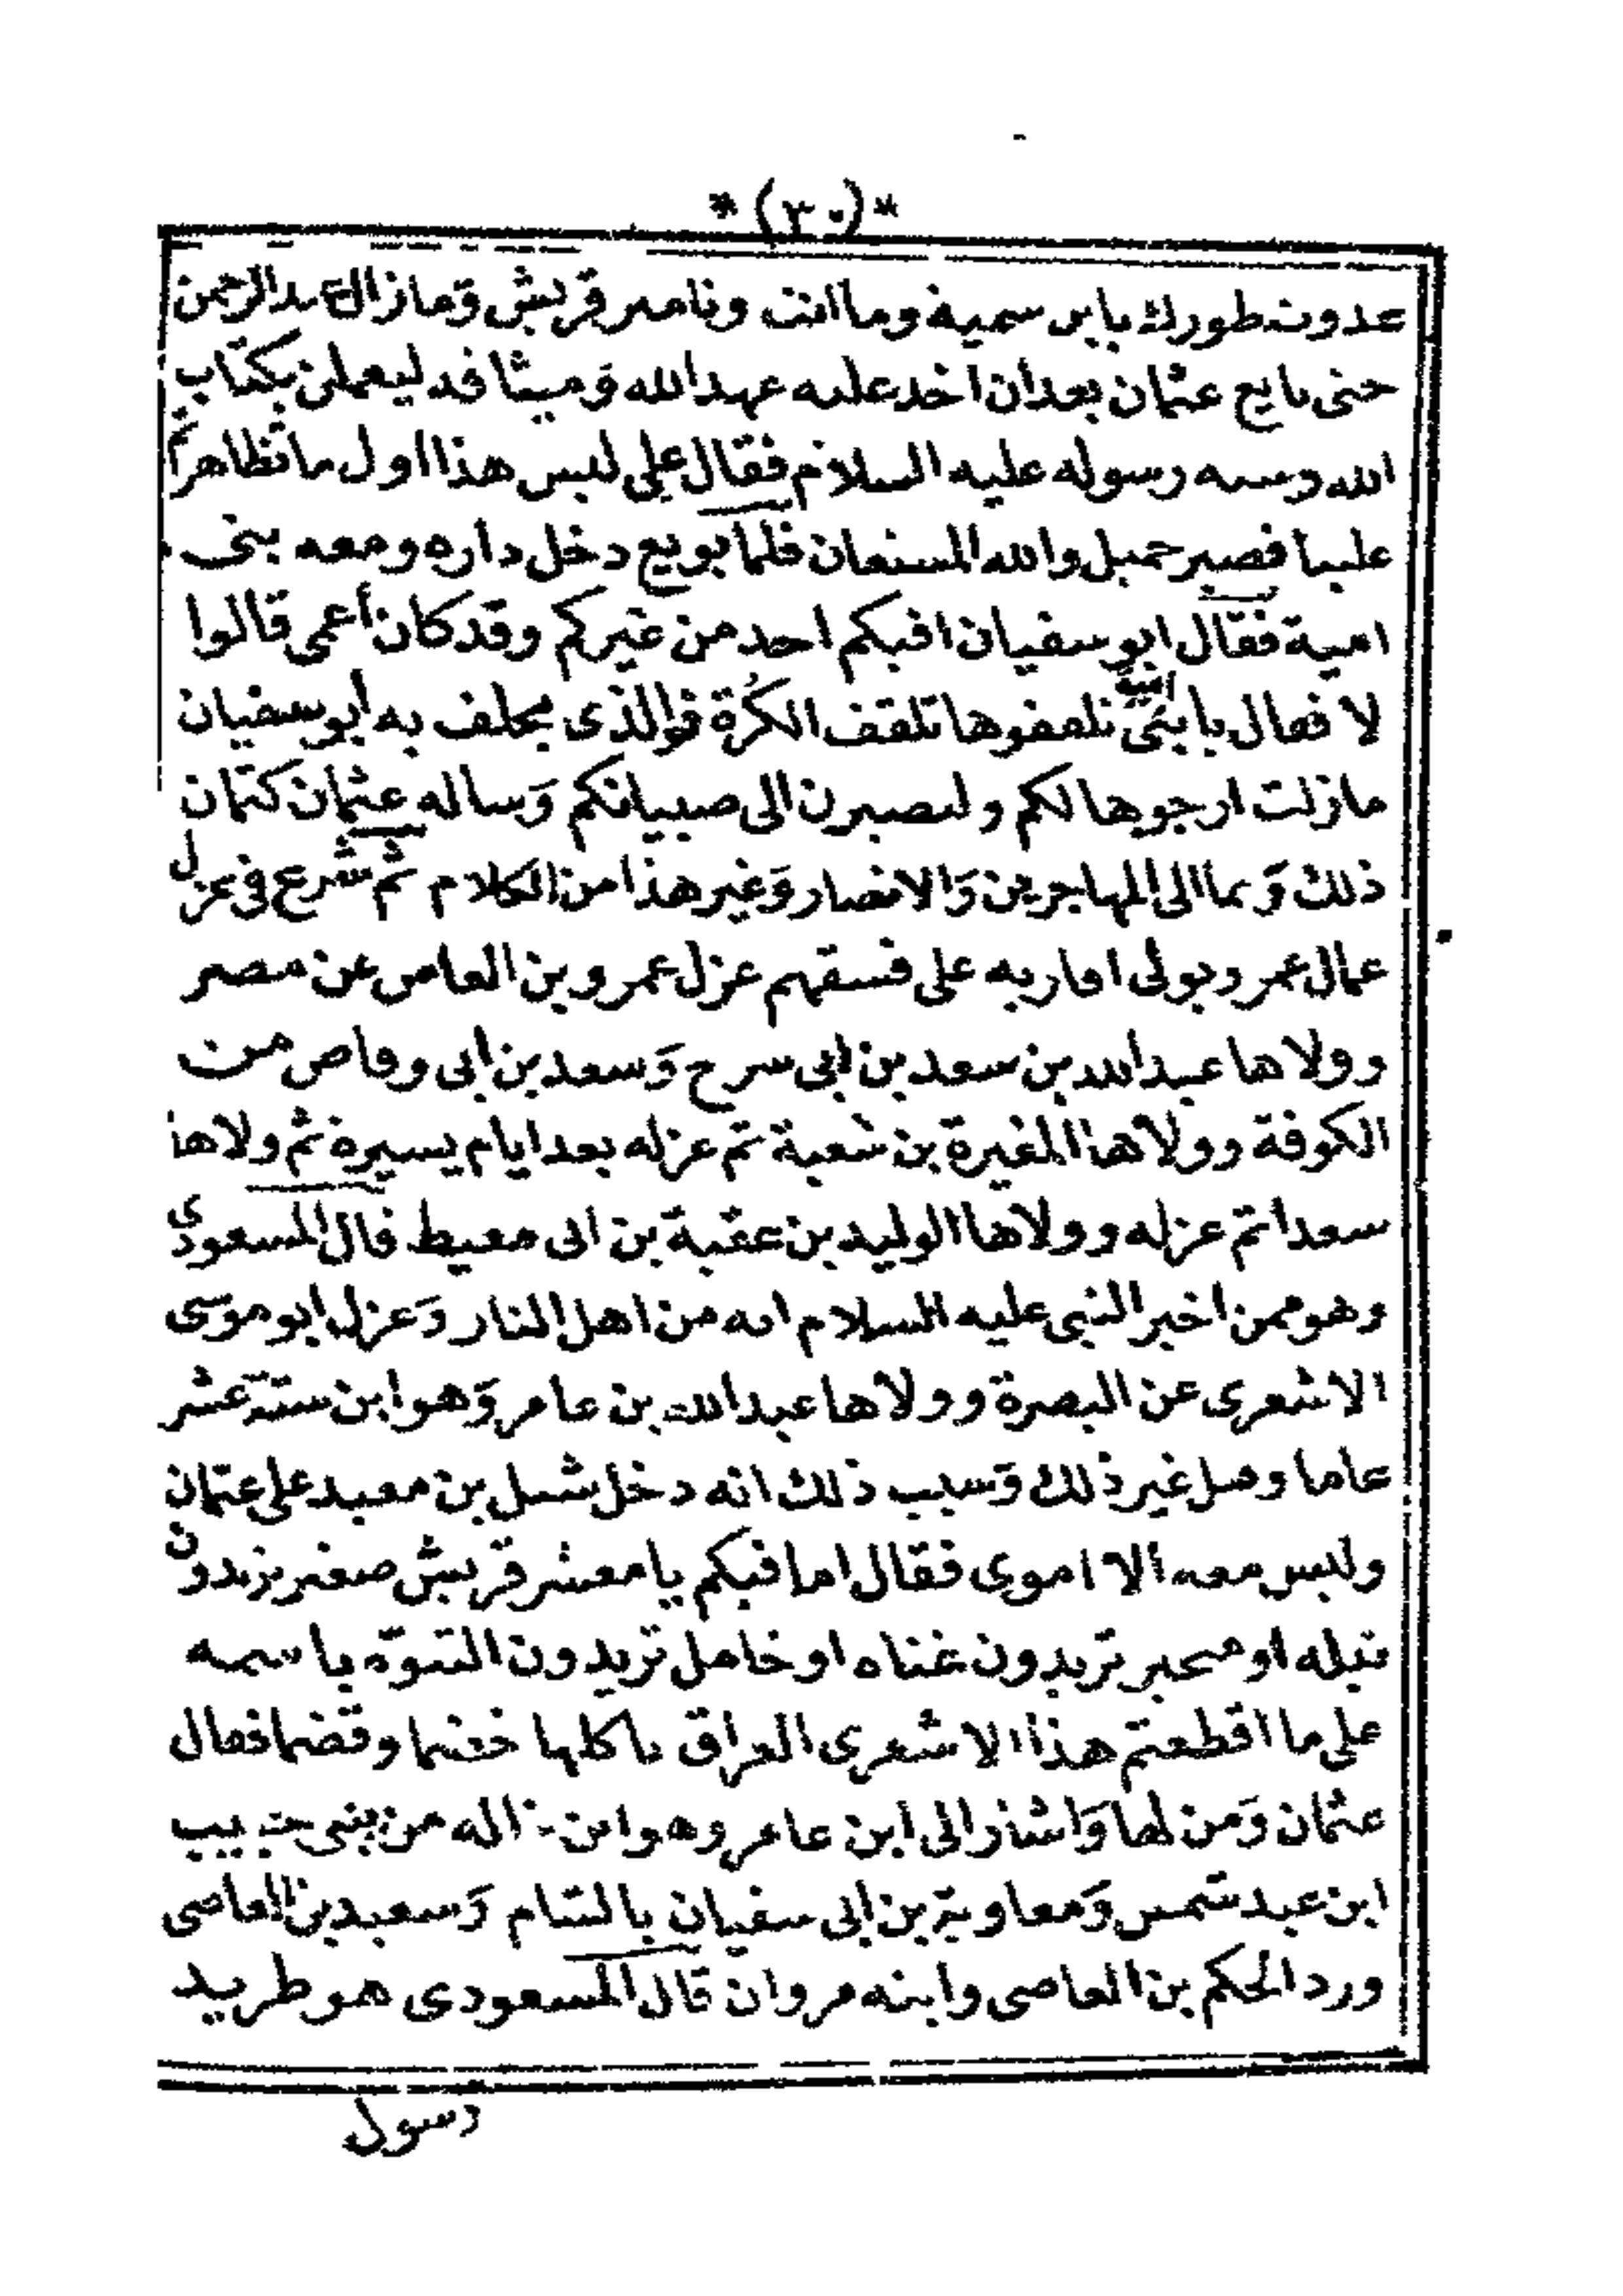 *(٣٠)*
عدوت طورك يابن سمية وما انت وتامير قريش وَمازال عبدالرحمن
حتى بايع عثمان بعدان اخذ عليه عهدالله وَميثاقه ليعملن بكتاب
الله وسنه رسوله عليه السلام فقال علي ليس هذا اول ماتظاهرتم
علينا فصبر جميل والله المستعان فلما بويع دخل داره ومعه بنى
امية فقال ابو سفيان افيكم احد من غيركم وقد كان أعمى قالوا
لا فقال يا بنى امية تلقفوها تلقف الكُرة فوالذى يحلف به أبو سفيان
مازلت ارجوها لكم ولتصيرن الى صبيانكم وَساله عثمان كتمان
ذلك وَنما الى المهاجرين وَالانصار وَغير هذا من الكلام ثم شرع فى عزل
عمال عمر وتولى اقاربه على فسقهم عزل عمرو بن العاص عن مصر
وولاها عبدالله بن سعد بن ابى سرح وَسعد بن ابى وقاص من
الكوفة وولاها المغيرة بن شعبة ثم عزله بعد ايام يسيرة ثم ولاها
سعدا ثم عزله وولاها الوليد بن عقبة بن ابى معيط قال المسعودى
وهو ممن اخبر النبى عليه السلام انه من اهل النار وَعزل ابو موسى
الاشعرى عن البصرة وولاها عبدالله بن عامر وَهو ابن ستة عشر
عاما وقيل غير ذلك وَسبب ذلك انه دخل شبل بن معبد على عثمان
وليس معه الا اموى فقال اما فيكم يا معشر قريش صغير تريدون
نبله او فقير تريدون غناه او خامل تريدون التنوّه باسمه
على ما اقطعتم هذا الاشعرى العراق ياكلها خضما وقضما فقال
عثمان وَمن لها وَاشار الى ابن عامر وهو ابن خاله من بنى حبيب
ابن عبد شمس وَمعاوية بن ابى سفيان بالشام وَسعيد بن العاصى
ورد الحكم بن العاصى وابنه مروان قال المسعودى هو طريد
رسول